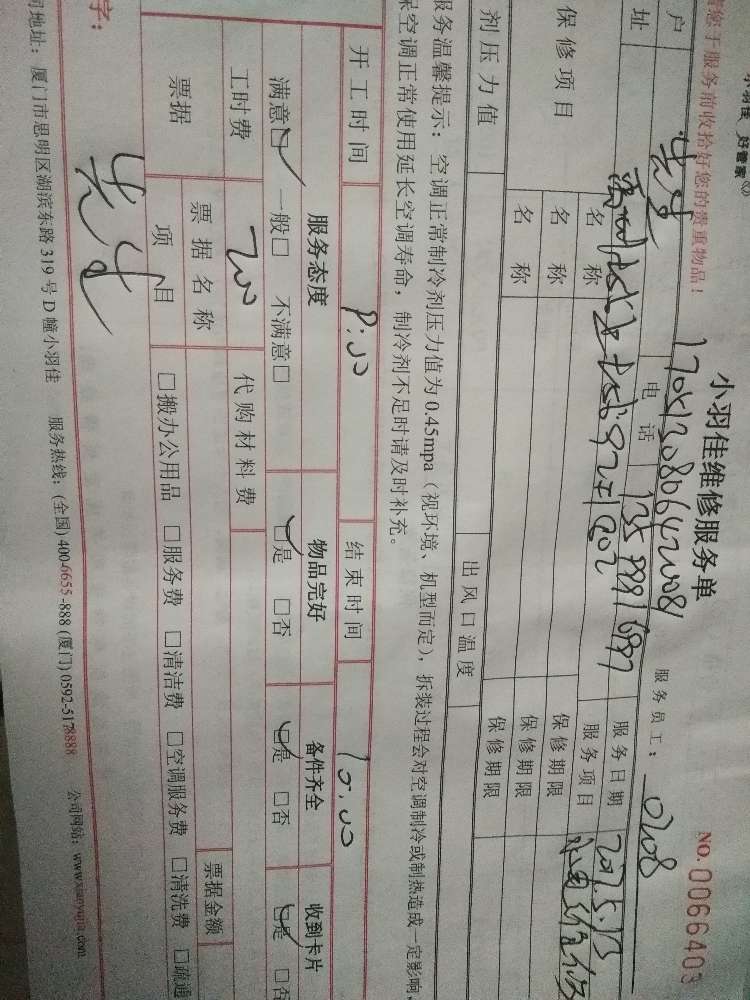 小羽佳 好管家
小羽佳维修服务单
NO.0066403
请您于服务前收拾好您的贵重物品!
服务员工: 0208
户 先生 电话 服务日期
址 服务项目
保修项目 名称 保修期限
名称 保修期限
名称 保修期限
剂压力值 出风口温度
服务温馨提示: 空调正常制冷剂压力值为0.45mpa(视环境、机型而定), 拆装过程会对空调制冷或制热造成一定影响,
保空调正常使用延长空调寿命, 制冷剂不足时请及时补充。
开工时间 结束时间 10:00
服务态度 物品完好 备件齐全 收到卡片
满意□ 一般□ 不满意□ □是 □否 □是 □否 □是 □否
工时费 200 代购材料费
票据 票据名称 票据金额
项目 □搬办公用品 □服务费 □清洁费 □空调服务费 □清洗费 □疏通
字: 先生
司地址: 厦门市思明区湖滨东路319号D幢小羽佳 服务热线: (全国)400-6655-888 (厦门)0592-5178888 公司网站: www.xiaoyujia.com